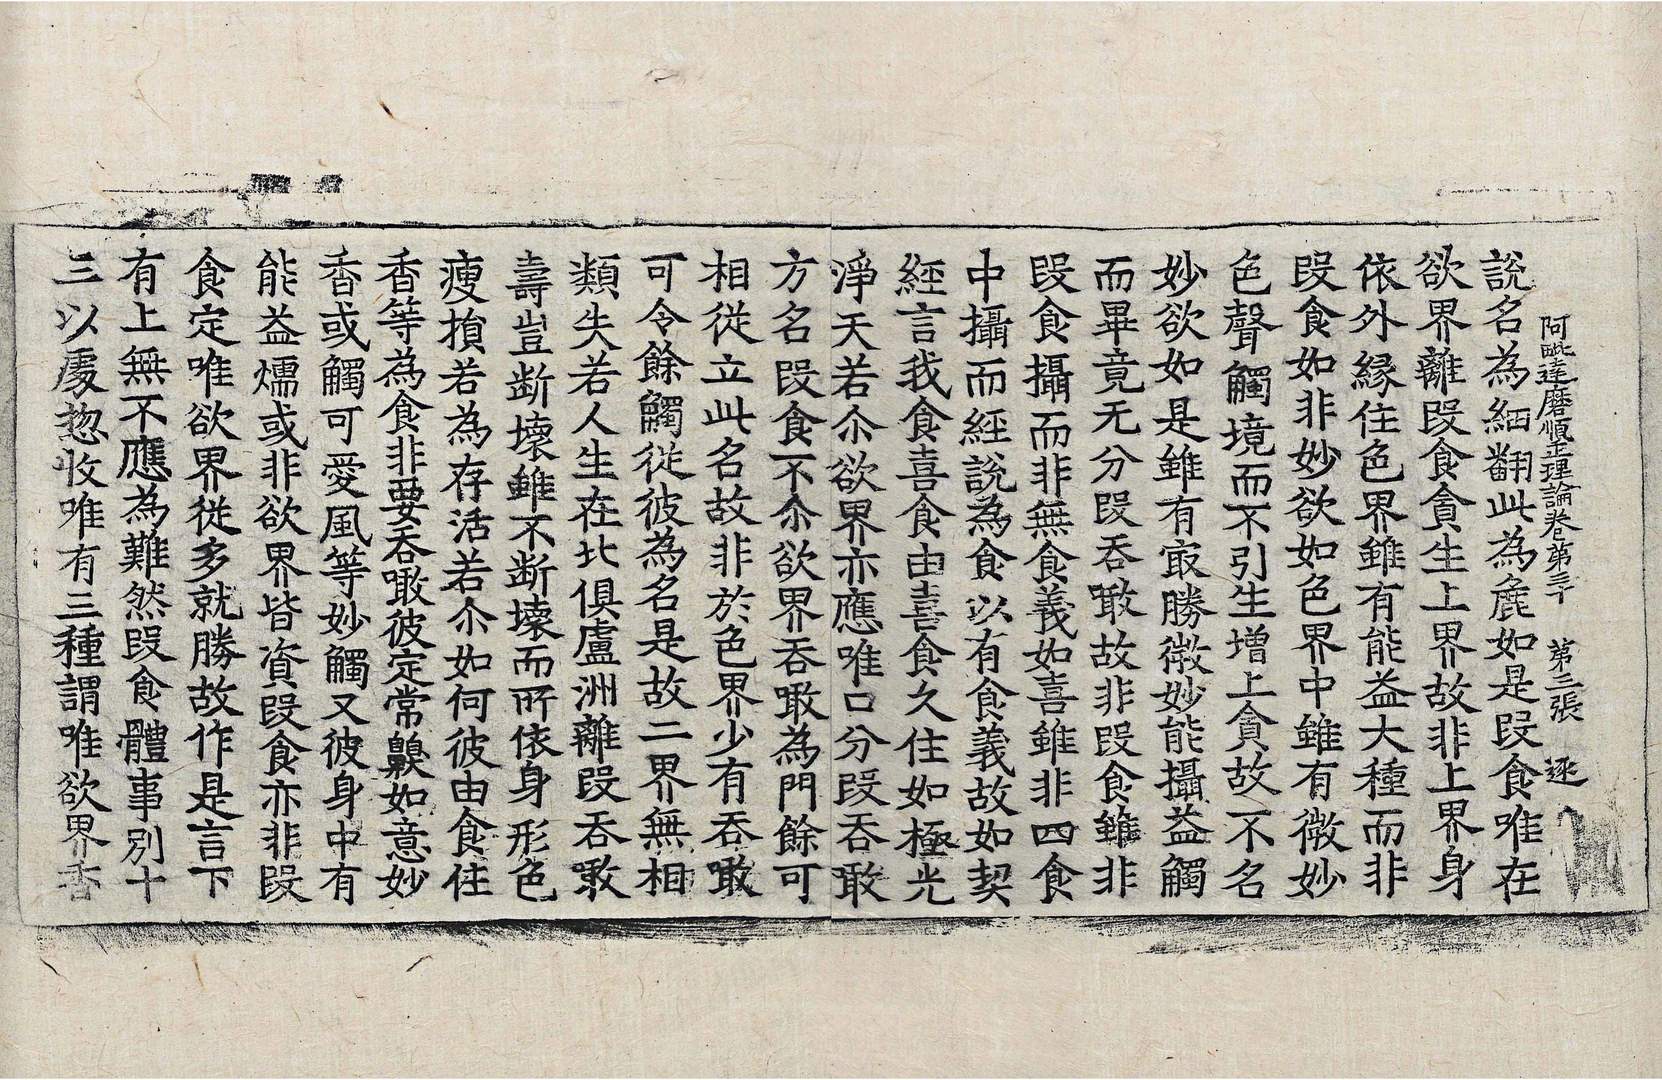 阿毗達磨順正理論卷第三十　第二張　逐
說名為細翻此為麁如是段食唯在
欲界離段食貪生上界故非上界身
依外緣住色界雖有能益大種而非
段食如非妙欲如色界中雖有微妙
色聲觸境而不引生增上貪故不名
妙欲如是雖有㝡勝微妙能攝益觸
而畢竟无分段吞噉故非段食雖非
段食攝而非無食義如喜雖非四食
中攝而經說為食以有食義故如契
經言我食喜食由喜食久住如極光
淨天若尒欲界亦應唯口分段吞噉
方名段食不尒欲界吞噉為門餘可
相從立此名故非於色界少有吞噉
可令餘觸從彼為名是故二界無相
類失若人生在北俱盧洲離段吞噉
壽豈断壞雖不断壞而所依身形色
瘦損若為存活若尒如何彼由食住
香等為食非要吞噉彼定常齅如意妙
香或觸可愛風等妙觸又彼身中有
能益煗或非欲界皆資段食亦非段
食定唯欲界從多就勝故作是言下
有上無不應為難然段食體事別十
三以處揔收唯有三種謂唯欲界香